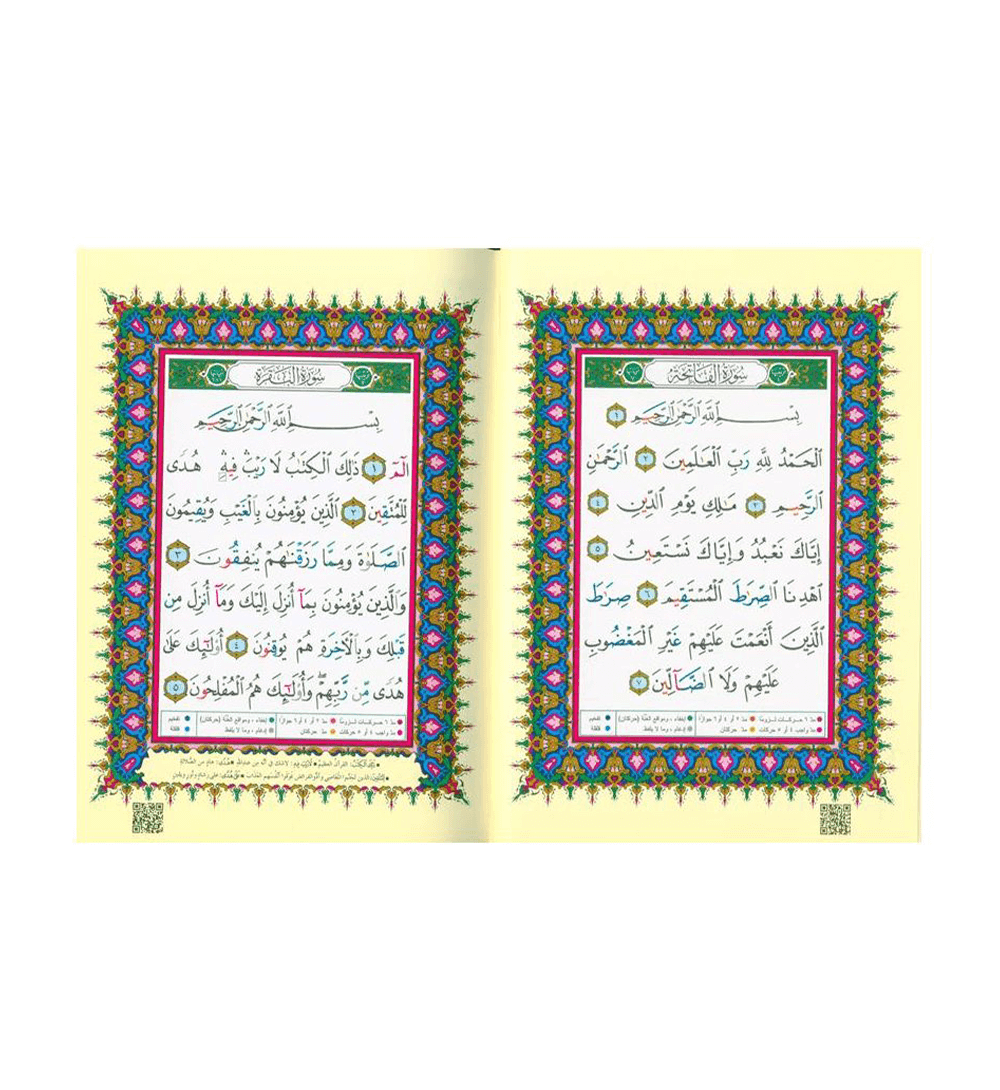 سورة الفاتحة
بِسْمِ ٱللَّهِ ٱلرَّحْمَٰنِ ٱلرَّحِيمِ ١
ٱلْحَمْدُ لِلَّهِ رَبِّ ٱلْعَٰلَمِينَ ٢ ٱلرَّحْمَٰنِ
ٱلرَّحِيمِ ٣ مَٰلِكِ يَوْمِ ٱلدِّينِ ٤
إِيَّاكَ نَعْبُدُ وَإِيَّاكَ نَسْتَعِينُ ٥
ٱهْدِنَا ٱلصِّرَٰطَ ٱلْمُسْتَقِيمَ ٦ صِرَٰطَ
ٱلَّذِينَ أَنْعَمْتَ عَلَيْهِمْ غَيْرِ ٱلْمَغْضُوبِ
عَلَيْهِمْ وَلَا ٱلضَّآلِّينَ ٧
مد ٦ حركات لزومًا مد ٢ أو ٤ أو ٦ جوازًا إخفاء، ومواقع الغنّة (حركتان) تفخيم
مد واجب ٤ أو ٥ حركات مد حركتان إدغام، وما لا يلفظ قلقلة
سورة البقرة
بِسْمِ ٱللَّهِ ٱلرَّحْمَٰنِ ٱلرَّحِيمِ
الٓمٓ ١ ذَٰلِكَ ٱلْكِتَٰبُ لَا رَيْبَ ۛ فِيهِ ۛ هُدًى
لِّلْمُتَّقِينَ ٢ ٱلَّذِينَ يُؤْمِنُونَ بِٱلْغَيْبِ وَيُقِيمُونَ
ٱلصَّلَوٰةَ وَمِمَّا رَزَقْنَٰهُمْ يُنفِقُونَ ٣
وَٱلَّذِينَ يُؤْمِنُونَ بِمَآ أُنزِلَ إِلَيْكَ وَمَآ أُنزِلَ مِن
قَبْلِكَ وَبِٱلْءَاخِرَةِ هُمْ يُوقِنُونَ ٤ أُو۟لَٰٓئِكَ عَلَىٰ
هُدًى مِّن رَّبِّهِمْ ۖ وَأُو۟لَٰٓئِكَ هُمُ ٱلْمُفْلِحُونَ ٥
مد ٦ حركات لزومًا مد ٢ أو ٤ أو ٦ جوازًا إخفاء، ومواقع الغنّة (حركتان) تفخيم
مد واجب ٤ أو ٥ حركات مد حركتان إدغام، وما لا يلفظ قلقلة
ذلك الكتاب: القرآن العظيم لا ريب فيه: لا شك في أنه من عند الله هدى: هادٍ من الضلالة